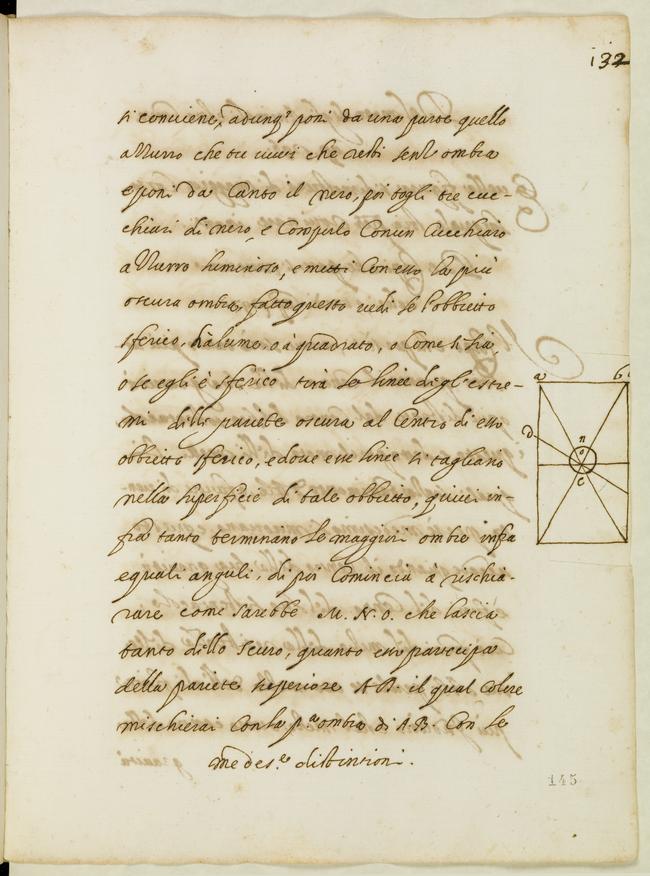 132
si conviene, adunq. poni da una parte quello
azzurro che tu vuoi che resti senz ombra
e poni da canto il nero, poi togli tre cuc-
chiari di nero, e Compulo Con un Cucchiaro
azzurro luminoso, e metti Con esso la più
oscura ombra, fatto questo vedi se l'obbietto
sferico, à o à quadrato, o Come si sia,
o se egli è sferico tira le linee da gl'estre-
mi della pariete oscura al Centro di esso
obbietto sferico, e dove esse linee si tagliano
nella superficie di tale obbietto, quivi in-
fra tanto terminano le maggiori ombre infra
equali anguli, di poi Comincia à rischia-
rare come sarebbe M. N. O. che lascia
tanto dello scuro, quanto esso partecipa
della pariete superiore A B. il qual Colore
mischierai Con la p.ª ombra di A.B. Con le
medes.e distintioni.
a b
d n
o
c
145